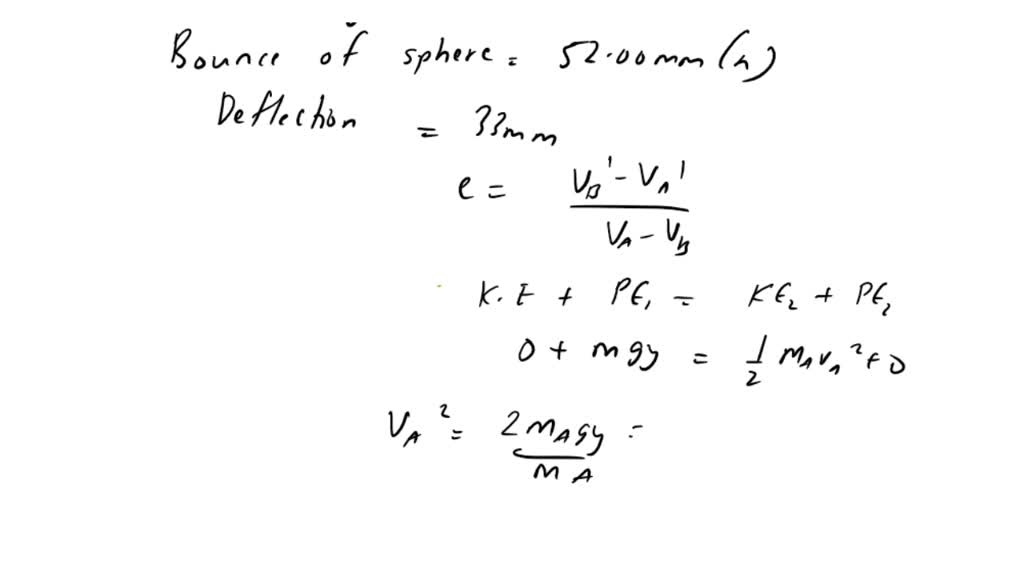 Bounce of sphere = 52.00mm (h)
Deflection = 33mm
e = VB' - VA' / VA - VB
K.E + PE1 = KE2 + PE2
0 + mgy = 1/2 mAvA² + 0
VA² = 2mAgy / mA =